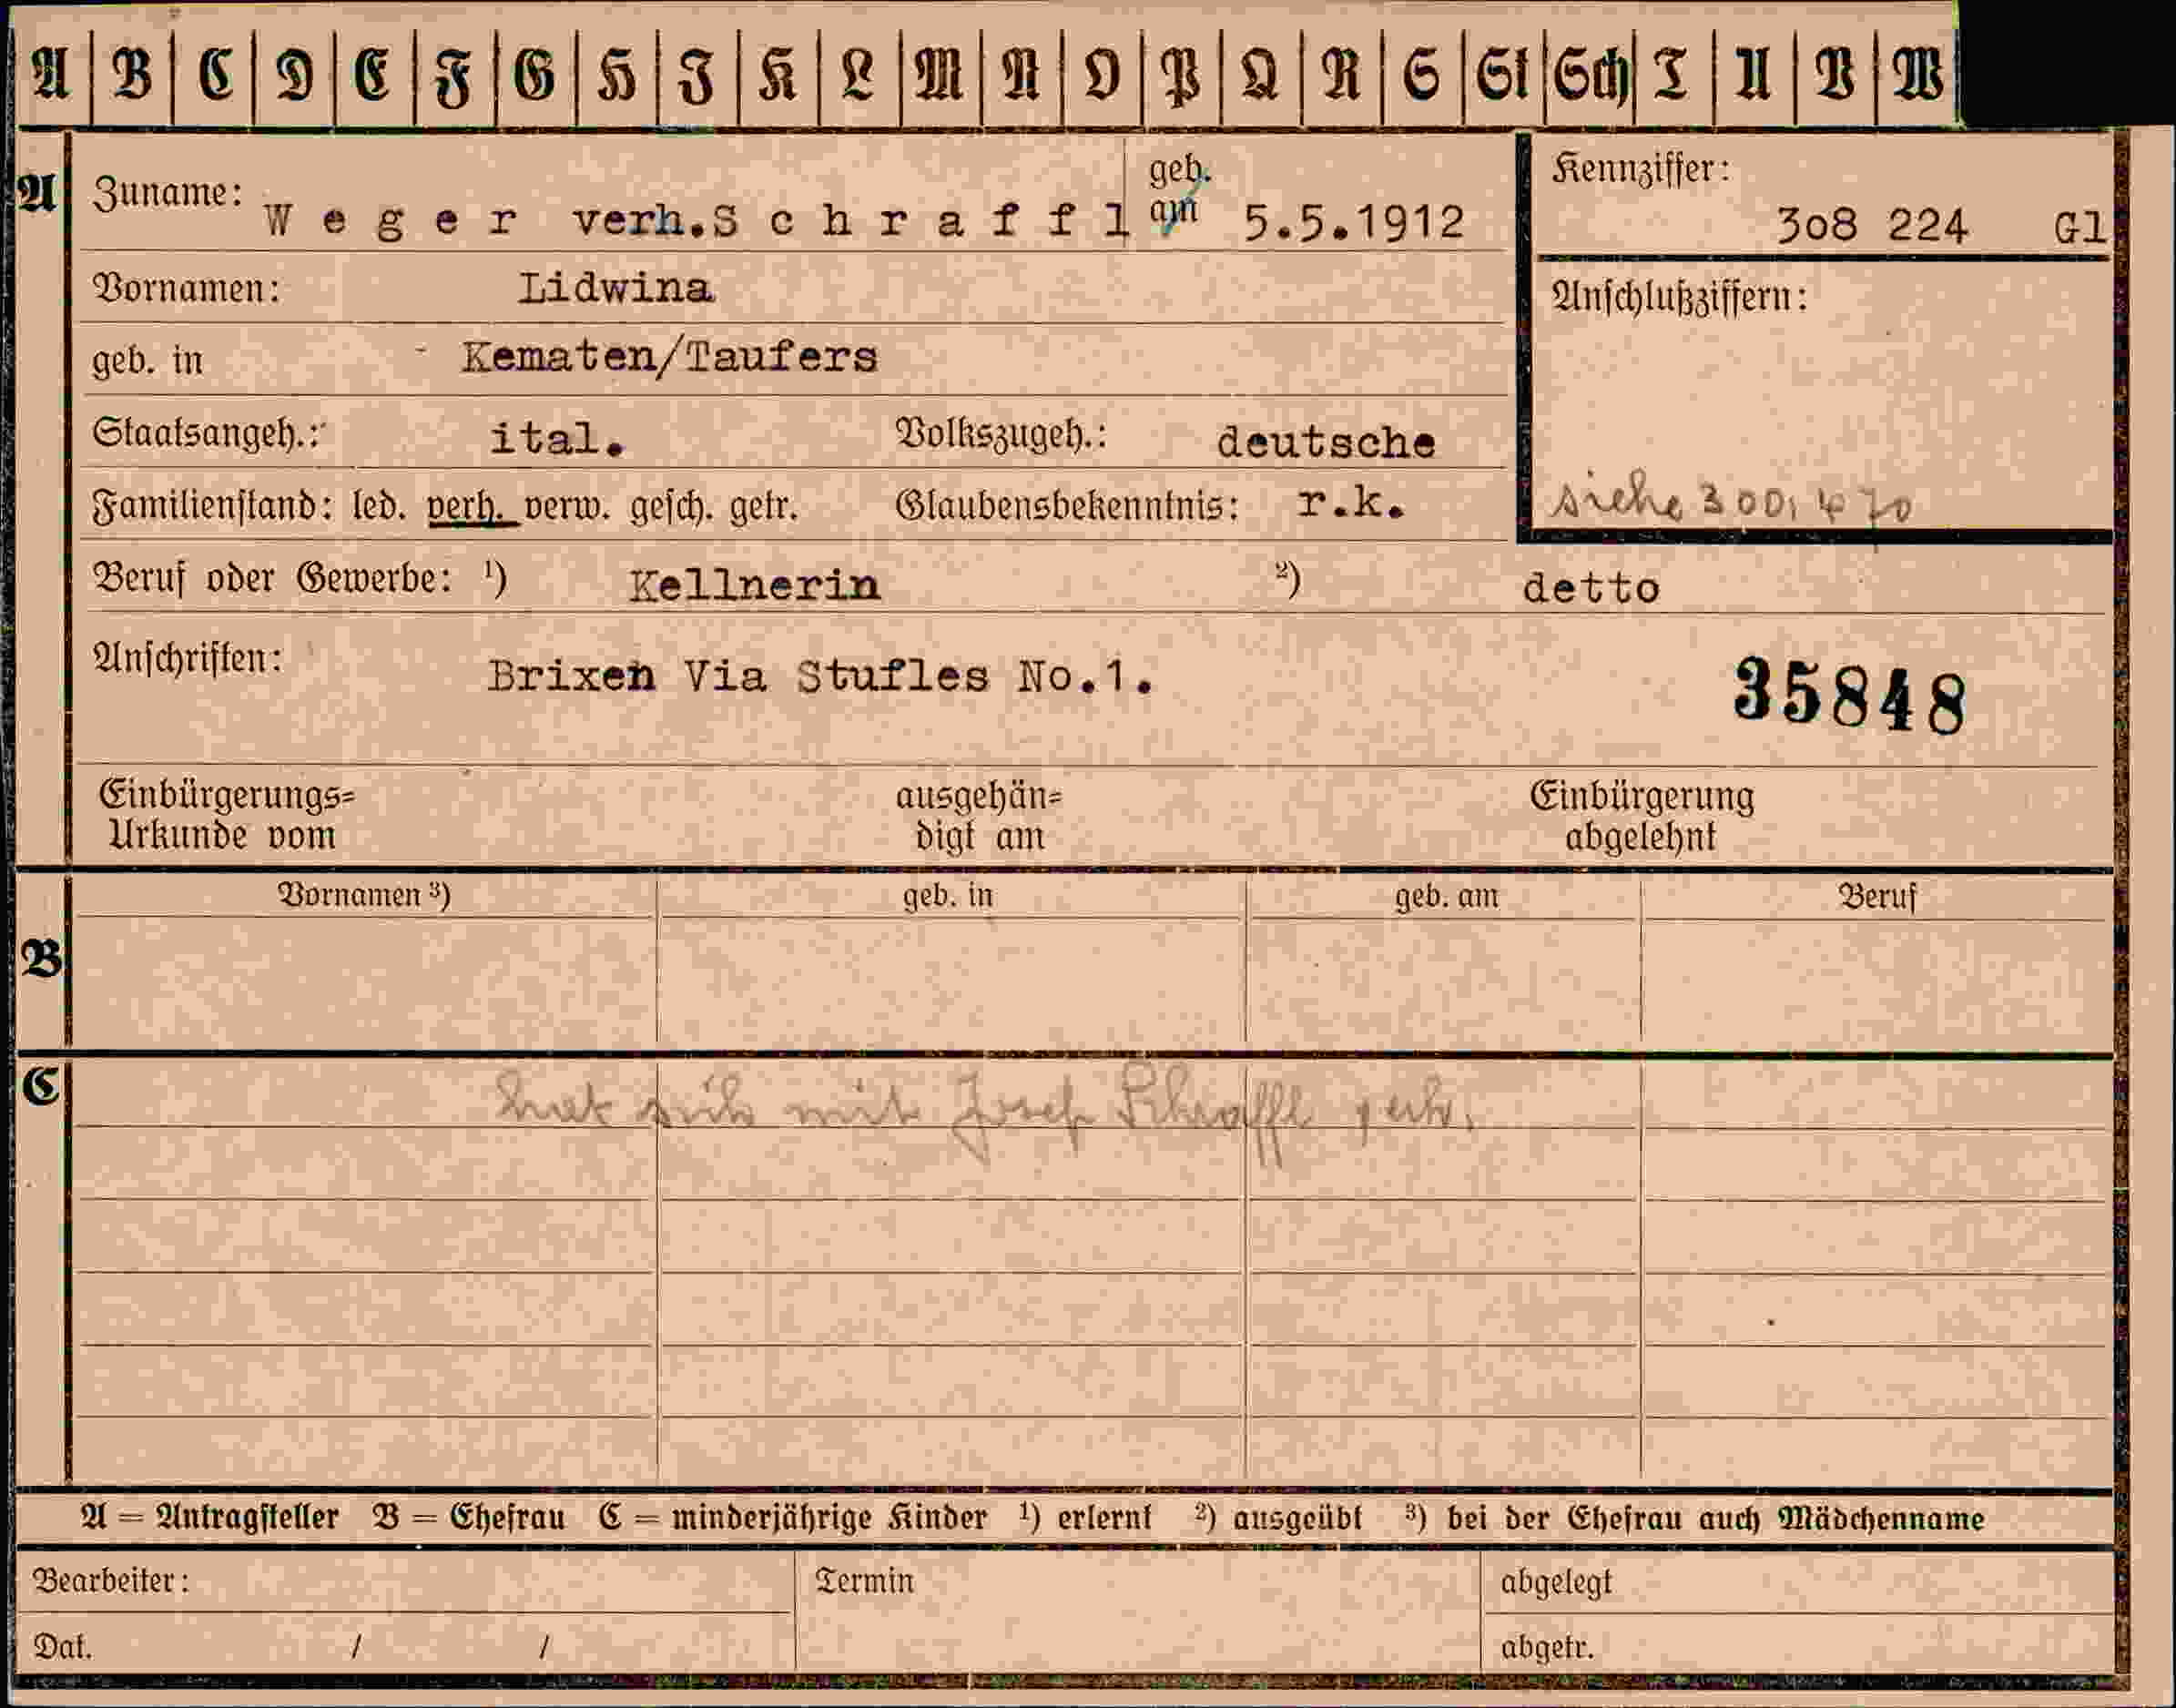 A B C D E F G H J K L M N O P Q R S St Sch T U V W
A Zuname: Weger verh. Schraffl geb. am 5.5.1912
Kennziffer: 308 224 Gl
Vornamen: Lidwina
Anschlußziffern:
geb. in - Kematen/Taufers
Staatsangeh.: ital. Volkszugeh.: deutsche
Familienstand: led. verh. verw. gesch. getr. Glaubensbekenntnis: r.k.
siehe 300, 470
Beruf oder Gewerbe: ¹) Kellnerin ²) detto
Anschriften: Brixen Via Stufles No.1. 35848
Einbürgerungs= ausgehän= Einbürgerung
Urkunde vom digt am abgelehnt
B Vornamen ³) geb. in geb. am Beruf
C hat sich mit Josef Schraffl verh.
A = Antragsteller B = Ehefrau C = minderjährige Kinder ¹) erlernt ²) ausgeübt ³) bei der Ehefrau auch Mädchenname
Bearbeiter: Termin abgelegt
Dat. / / abgetr.